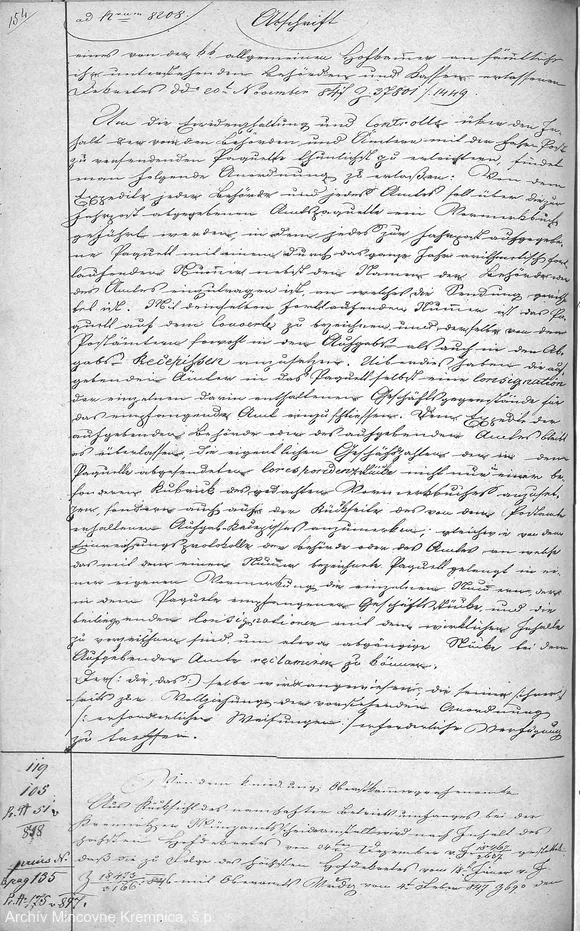 154
ad Nrum 8208.
Abschrift
eines von der kk allgemeinen Hofkammer an sämtliche
ihr unterstehenden Behörden und Kassen erlassenen
Dekretes dd 20t November 847 Z 37801/1449.
Um die Evidenzhaltung und Controlle über den In-
halt der von den Behörden und Ämtern mit der fahr. Post
zu versendenden Paquette thunlichst zu erleichtern, findet
man folgende Anordnung zu erlassen: Von dem
Expedite jeder Behörde und jedes Amtes soll über die zur
Fahrpost abgegebenen Amtspaquette ein Vermerkbuch
geführt werden, in dem jedes zur Fahrpost aufgegebe-
ne Paquett mit einem durch das ganze Jahr arithmetisch fort
laufenden Nummer nebst dem Namen der Behörde oder
des Amtes einzutragen ist, an welches die Sendung gerich-
tet ist. Mit derselben fortlaufenden Nummer ist das Pa-
quett auf dem Couverte zu bezeichnen, und derselbe von den
Postämtern sowohl in den Aufgabs- als auch in den Ab-
gabs-Recepissen anzusetzen. Uibrigens haben die auf-
gebenden Ämter in das Paquett selbst eine Consignation
der einzelnen darin enthaltenen Geschäftsgegenstände für
das empfangende Amt einzuschliessen. Dem Expedite der
aufgebenden Behörde oder des aufgebenden Amtes bleibt
es überlassen, die eigentlichen Geschäftszahlen der in dem
Paquette abgesendeten Correspondenzstücke nicht nur in einer be-
sonderen Rubrick des gedachten Vermerkbuches anzuset-
zen, sondern auch auf der Rückseite des von dem Postamte
erhaltenen Aufgabs-Recepisses anzumerken; gleichwie von dem
Einreichungsprotokolle der Behörde oder des Amtes an welche
das mit dem einen Nummer bezeichnete Paquett gelangt in ei-
ner eigenen Vormerkung die einzelnen Nummern, der
in dem Paquette empfangenen Geschäftsstücke und die
beiliegenden Consignationen mit dem wirklichen Inhalte
zu vergleichen sind, um etwa abgängige Stücke bei dem
Aufgebenden Amte reclamiren zu können.
Der/: die, das:/ selbe wird angewiesen, die seiner/: ihrer:/
seits zur Vollziehung der vorstehenden Anordnung
/: erforderlichen Weisungen:/ erforderliche Verfügung
zu treffen.
119
105
Pr. A 51 v
848
Von dem Oberstkammergrafenamte
Aus Rücksicht des vermehrten Betriebsumfanges bei der
Kremnitzer Münzamts wird nach Inhalt des
hohen Hofdekretes vom 24ten Dezember v. J. 18467/2667 gestattet
daß die zu Folge des hohen Hofdekretes vom 13t Jäner v. J.
Z 18473/2166 846 mit Oberamts vom 4t Feber 847 Z 690 den
prius N.
pag 135
Pr. A. 175 v 847.
Archív Mincovne Kremnica, š.p.